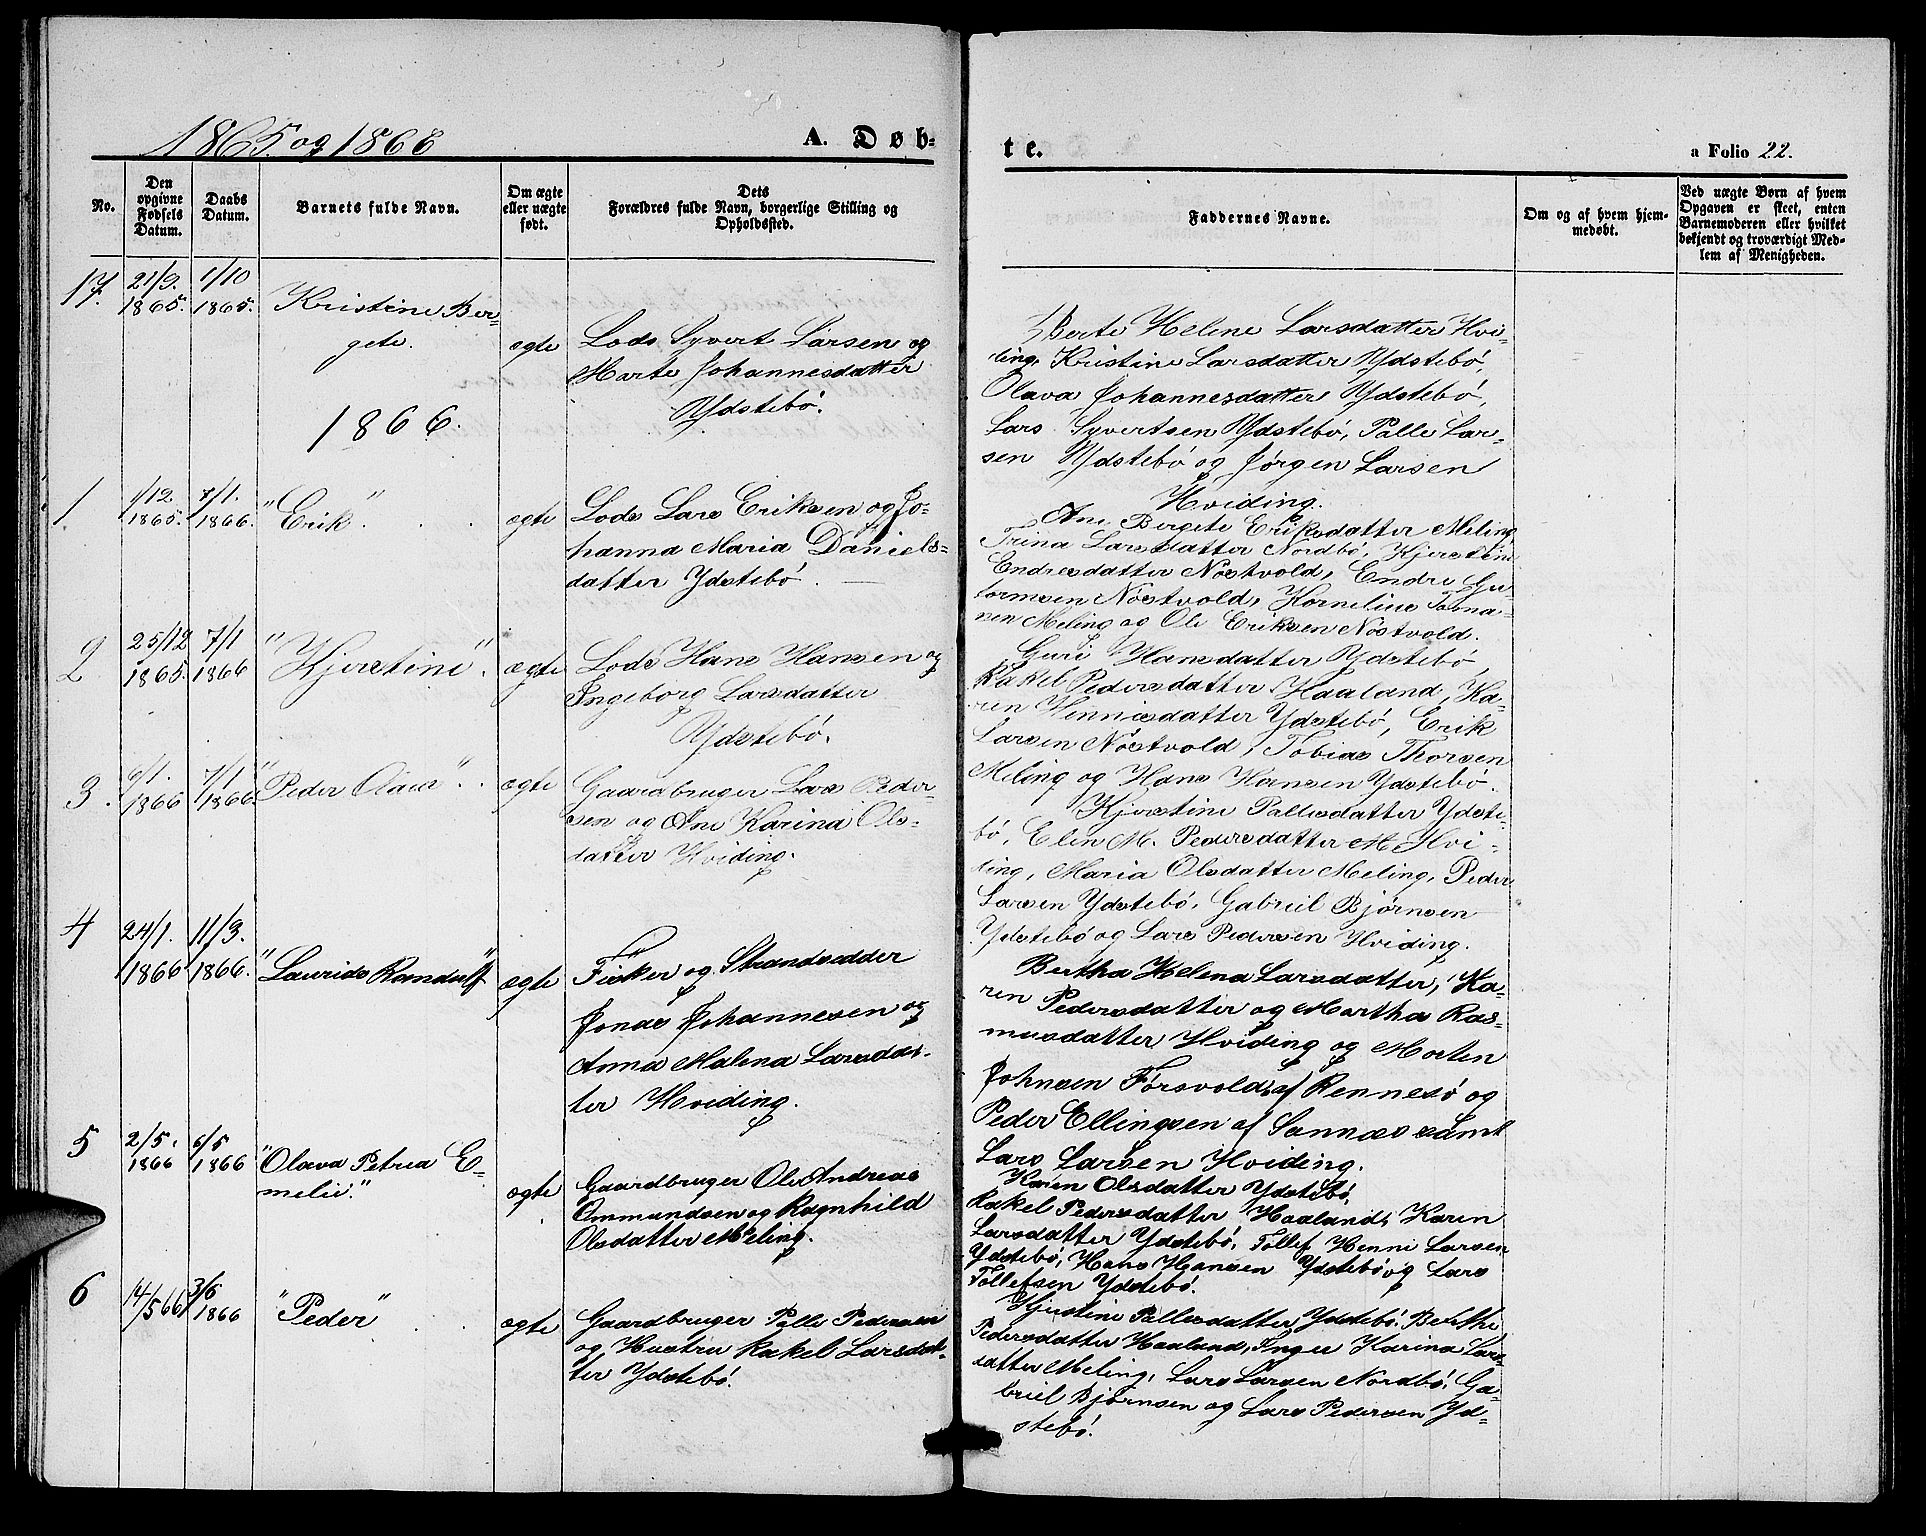 1865 og 1866
A. Døb-
te.
a Folio 22.
No.
Den
opgivne
Fødsels
Datum.
Daabs
Datum.
Barnets fulde Navn.
Om ægte
eller uægte
født.
Dets
Forældres fulde Navn, borgerlige Stilling og
Opholdssted.
Faddernes Navne.
Om og af hvem hjem-
medøbt.
Ved uægte Børn af hvem
Opgaven er skeet, enten
Barnemoderen eller hvilket
bekjendt og troværdigt Med-
lem af Menigheden.
17.
21/9.
1865.
1/10
1865.
Kristine Ber-
gete.
ægte
Lods Syvert Larsen og
Marte Johannesdatter
Ydstebö.
Berte Helene Larsdatter Hvi-
ding, Kristine Larsdatter Ydstebö,
Olava Johannesdatter Ydstebö,
Lars Syvertsen Ydstebö, Palle Lar-
sen Ydstebö og Jörgen Larsen
Hviding.
1866.
1.
1/12
1865.
7/1.
1866.
"Erik".
ægte
Lods Lars Eriksen og Jo-
hanna Maria Daniels-
datter Ydstebö.
Ane Bergete Eriksdatter Meling
Trina Larsdatter Nordbö, Kjerstine
Endresdatter Nöstvold, Endre Gu-
tormsen Nöstvold, Kornelius
Meling og Ole Eriksen Nöstvold.
2
25/12
1865.
7/1
1866
"Kjerstine".
ægte
Lods Hans Hansen og
Ingeborg Larsdatter
Ydstebö.
Guri Hansdatter Ydstebö,
Rakel Pedersdatter Haaland, Ka-
ren Hennisdatter Ydstebö, Erik
Larsen Nöstvold, Tobias Thorsen
Meling og Hans Hansen Ydstebö.
3.
6/1.
1866
7/1
1866.
"Peder Olaus".
ægte
Gaardbruger Lars Peder-
sen og Ane Karina Ols-
datter Hviding.
Kjerstine Pallesdatter Ydste-
bö, Elen M. Pedersdatter Hvi-
ding, Maria Olsdatter Meling, Peder
Larsen Ydstebö, Gabriel Bjørnsen
Ydstebö og Lars Pedersen Hviding.
4
24/1.
1866
11/3.
1866.
"Laurids Randulf"
ægte
Fisker og Strandsidder
Jonas Johannesen og
Anna Malena Larsdat-
ter Hviding.
Bertha Helena Larsdatter, Ka-
ren Pedersdatter og Martha Ras-
musdatter Hviding og Morten
Johnsen Försvold af Rennesö og
Peder Ellingsen af Sannæs samt
Lars Larsen Hviding.
5
2/5.
1866
6/5
1866
"Olava Petrea E-
melie."
ægte
Gaardbruger Ole Andreas
Ommundsen og Ragnhild
Olsdatter Meling.
Karen Olsdatter Ydstebö,
Rakel Pedersdatter Haaland, Karen
Larsdatter Ydstebö, Tollef Henni Larsen
Ydstebö, Hans Hansen Ydstebö og Lars
Tollefsen Ydstebö.
6
14/5 66
3/6
1866
"Peder"
ægte
Gaardbruger Palle Pedersen
og Hustru Rakel Larsdat-
ter Ydstebö.
Kjerstine Pallesdatter Ydstebö, Berthe
Pedersdatter Haaland, Inger Karina Lars-
datter Meling, Lars Larsen Nordbö, Ga-
briel Bjørnsen og Lars Pedersen Yd-
stebö.